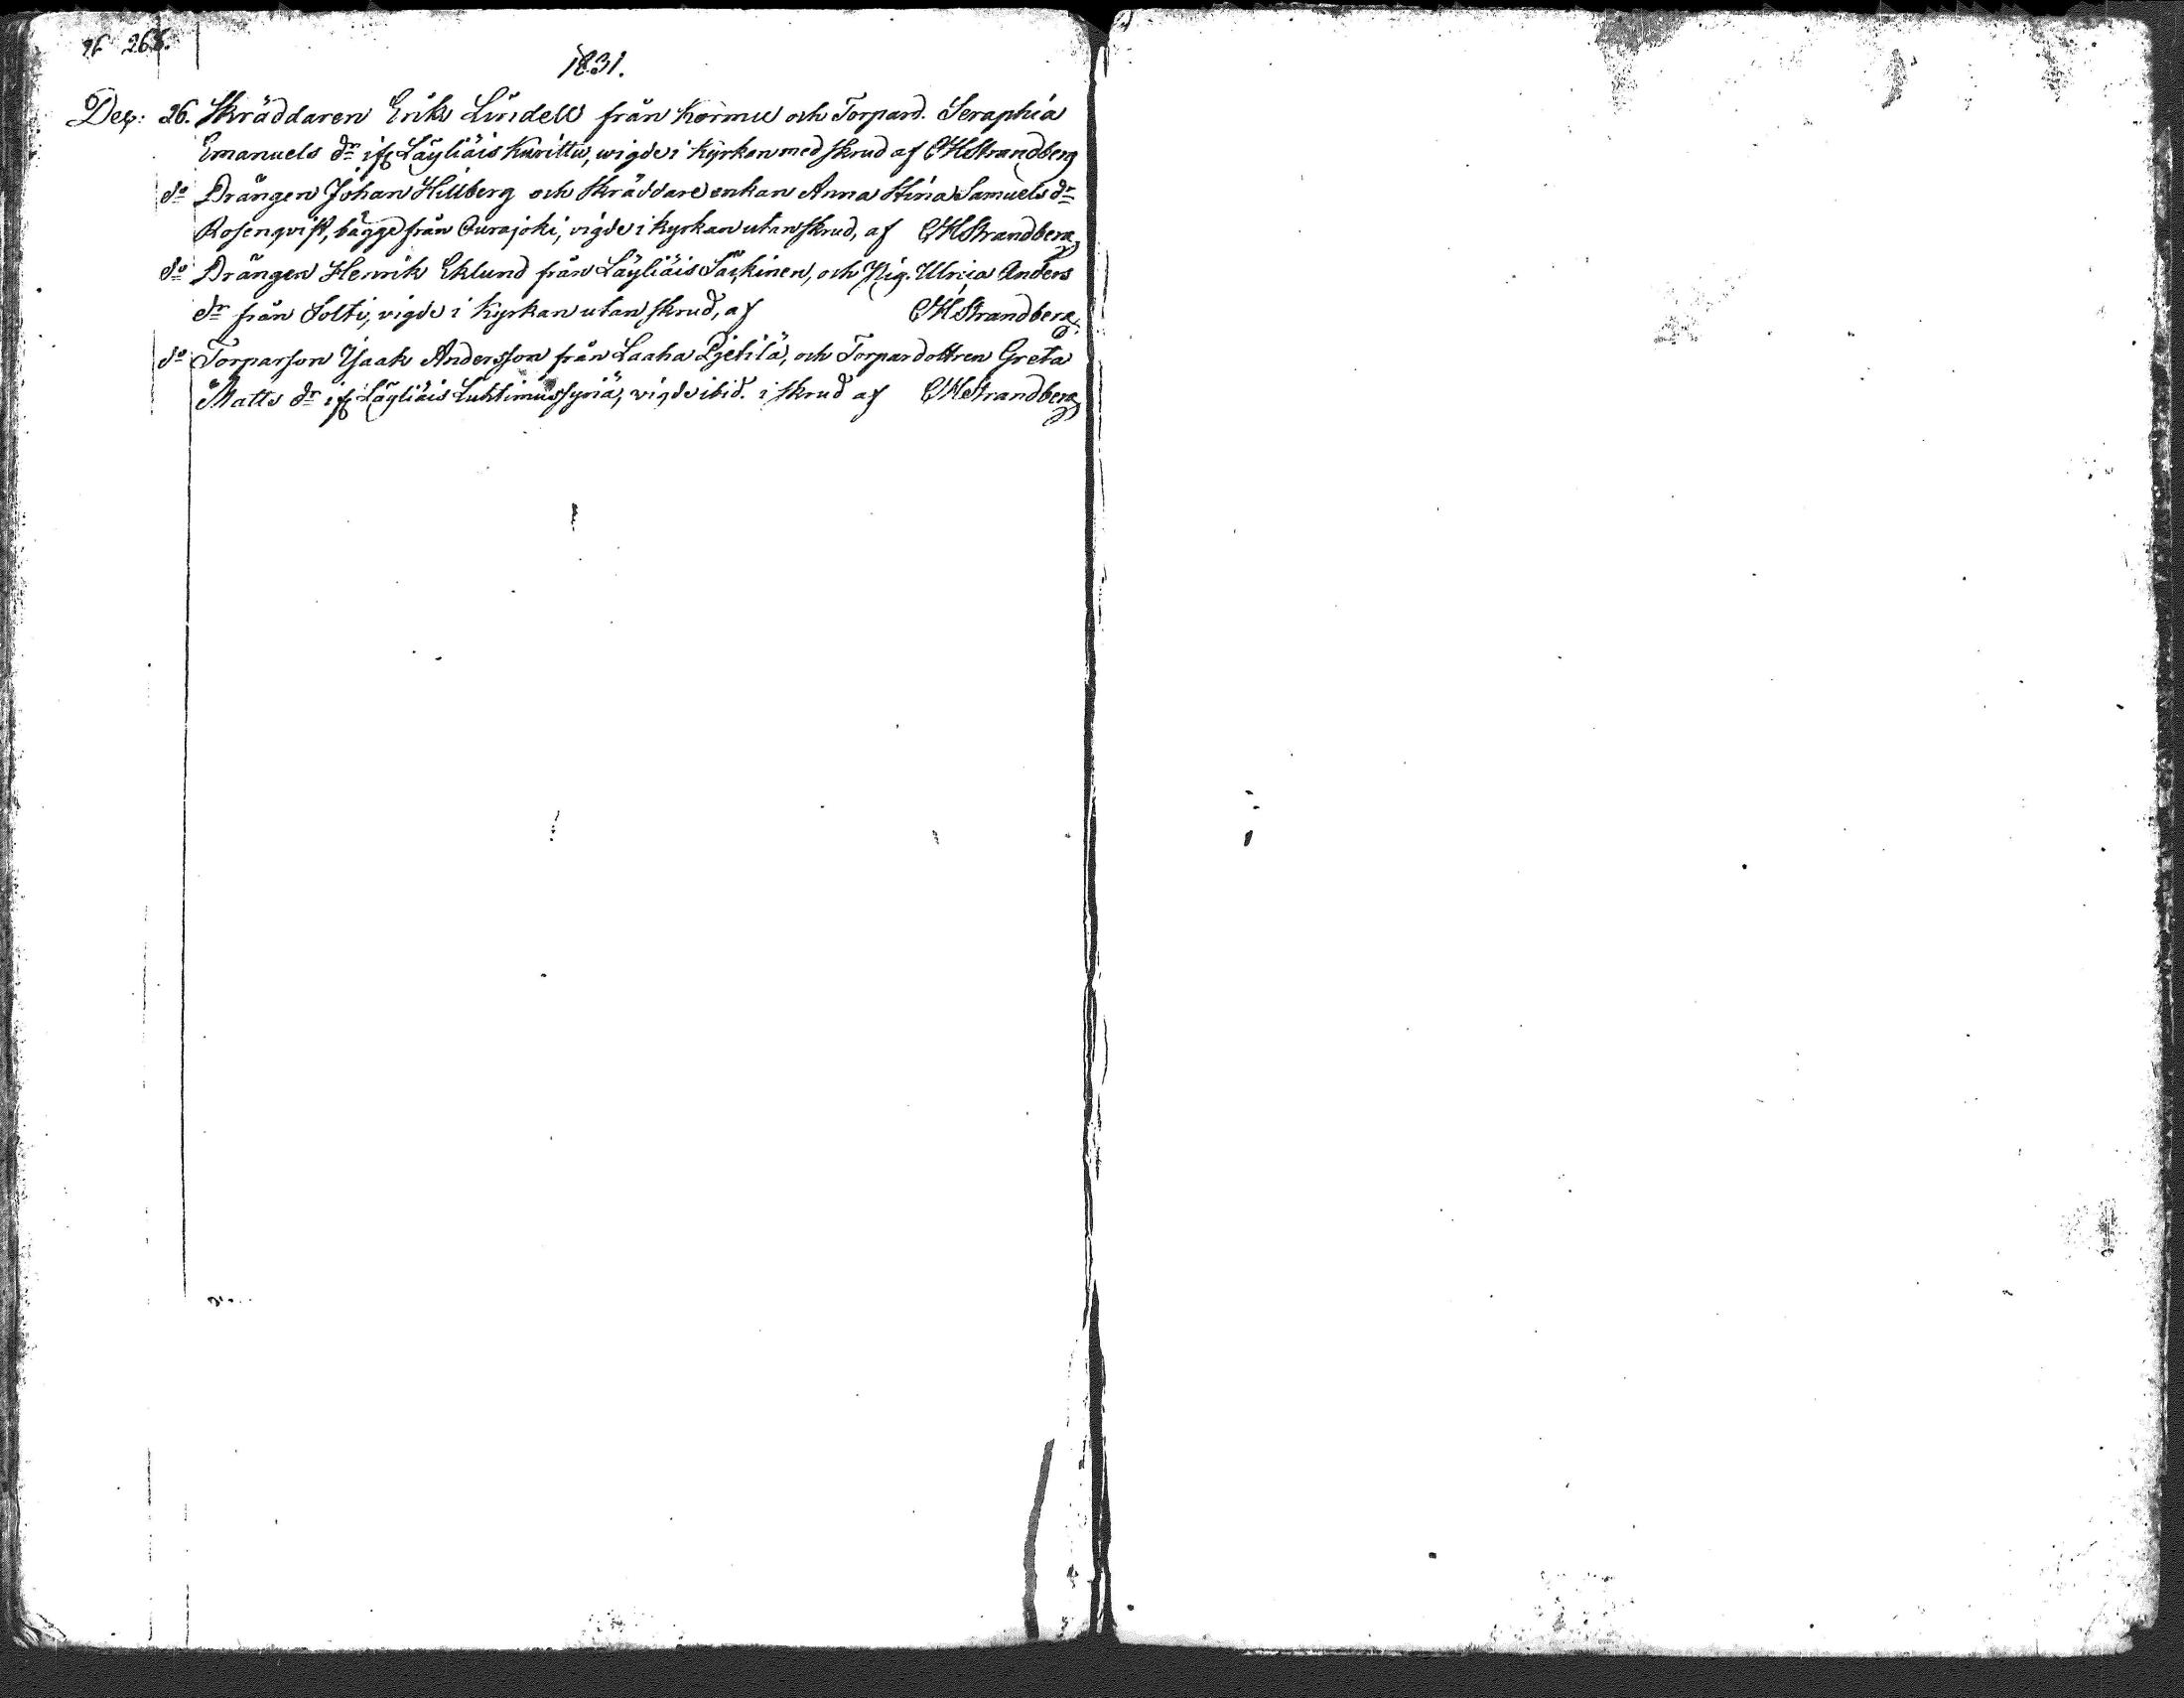 26
1831.
Dec: 26. Skräddaren Erik Lindell från Kormu och Torpard. Seraphia
Emanuels dr ifr Läyliäis Kurittu, wigde i Kyrkan med skrud af CHStrandberg
do Drängen Johan Hillberg och Skräddare enkan Anna Stina Samuels dr
Rosenqvist, bägge från Ourajoki, vigde i Kyrkan utan skrud, af CHStrandberg
do Drängen Henrik Eklund från Läyliäis Särkinen, och Pig. Ulrica Anders
dr från Solti, vigde i Kyrkan utan skrud, af CHStrandberg.
do Torparson Isaak Andersson från Laaha Pjetilä, och Torpardottren Greta
Matts dr ifr Läyliäis Luhtimussyriä, vigde ibid. i skrud af CHStrandberg